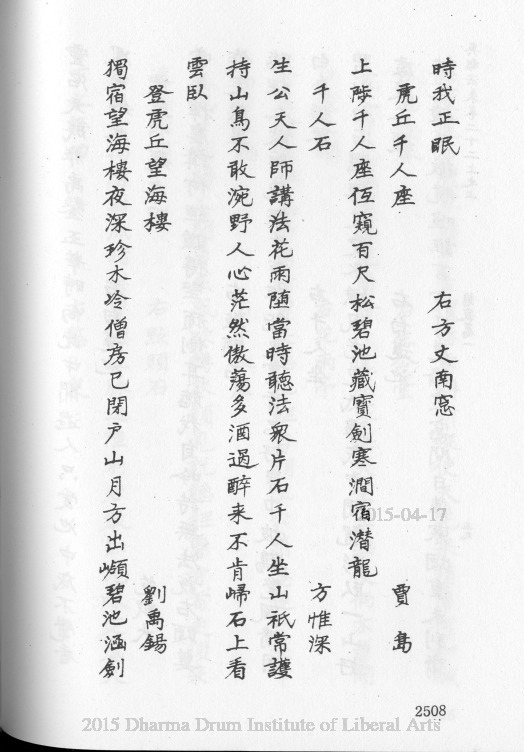 時我正眠　右方丈南窓
虎丘千人座　賈島
上陟千人座低窺百尺松碧池藏寶劍寒澗宿潛龍
千人石　方惟深
生公天人師講法花雨随當時聽法衆片石千人坐山祇常護
持山鳥不敢涴野人心茫然傲蕩多酒過醉来不肯歸石上看
雲臥
登虎丘望海樓　劉禹錫
獨宿望海樓夜深珍木冷僧房已閉戶山月方出嶺碧池涵劍
2015-04-17
2508
2015 Dharma Drum Institute of Liberal Arts